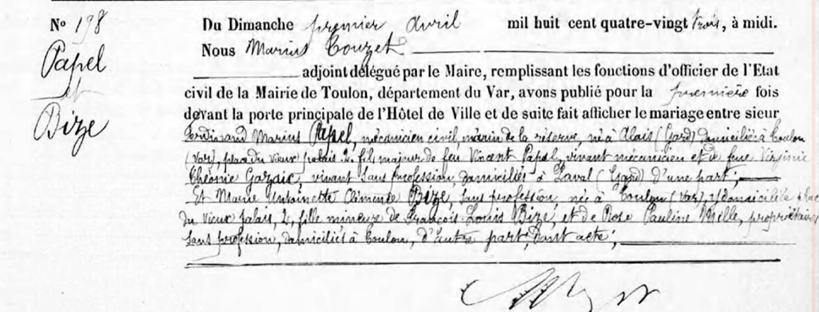 Nº 198
Papel
et
Bize
Du Dimanche premier avril mil huit cent quatre-vingt trois, à midi.
Nous Marius Touzet
adjoint délégué par le Maire, remplissant les fonctions d'officier de l'Etat
civil de la Mairie de Toulon, département du Var, avons publié pour la première fois
devant la porte principale de l'Hôtel de Ville et de suite fait afficher le mariage entre sieur
Ferdinand Marius Papel, mécanicien civil, marin de la réserve, né à Alais (Gard) domicilié à Toulon
(Var), place du vieux palais 2, fils majeur de feu Vincent Papel, vivant mécanicien et de feue Virginie
Théonie, vivant sans profession, domiciliés à Laval (Gard) d'une part;
Et Marie Antoinette Clémence Bize, sans profession née à Toulon (Var), y domiciliée
du Vieux palais, 2, fille mineure de François Louis Bize, et de Rose Pauline, propriétaires
sans profession, domiciliés à Toulon, d'autre part; Dont acte;